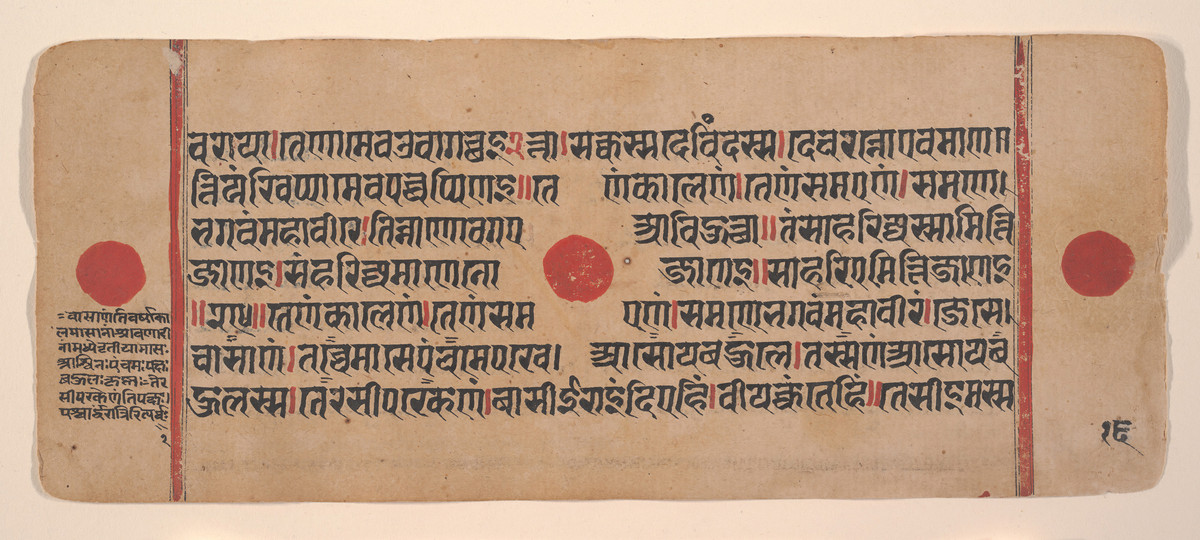 वराया।तेणामेवउवागच्छइ२त्ता।सक्कस्सदेविंदस्स।देवरन्नोएवमाण
त्तियंखिप्पामेवपच्चप्पिणइ॥ते णंकालेणं।तेणंसमएणं।समणे।
भगवंमहावीरे।तिन्नाणोवगए आविहुच्छा॥तंसाहरिज्जिस्सामित्ति
जाणइ।संहरिज्जमाणेनो जाणइ॥साहरिएमित्तिजाणइ
तेणंकालेणं।तेणंसम एणं।समणेभगवंमहावीरे।जेसे।
वासाणं।तच्चेमासेपंचमेपरके। आसोयबहुले।तस्सणंआसोयब
हुलस्स।तेरसीपरकेणं।बासीईराइंदिएहिं।वीयक्कंतेहिं॥तेसीइमस्स
=वासाणंतिवर्षाका
लमासानांश्रावणादी
नांमध्येतृतीयोमासः
आश्विनःपंचमःपक्षः
बहुलःकृष्णःतेर
सीपरकेणंतिपक्षः।
पश्चार्द्धरात्रिरित्यर्थः
१६